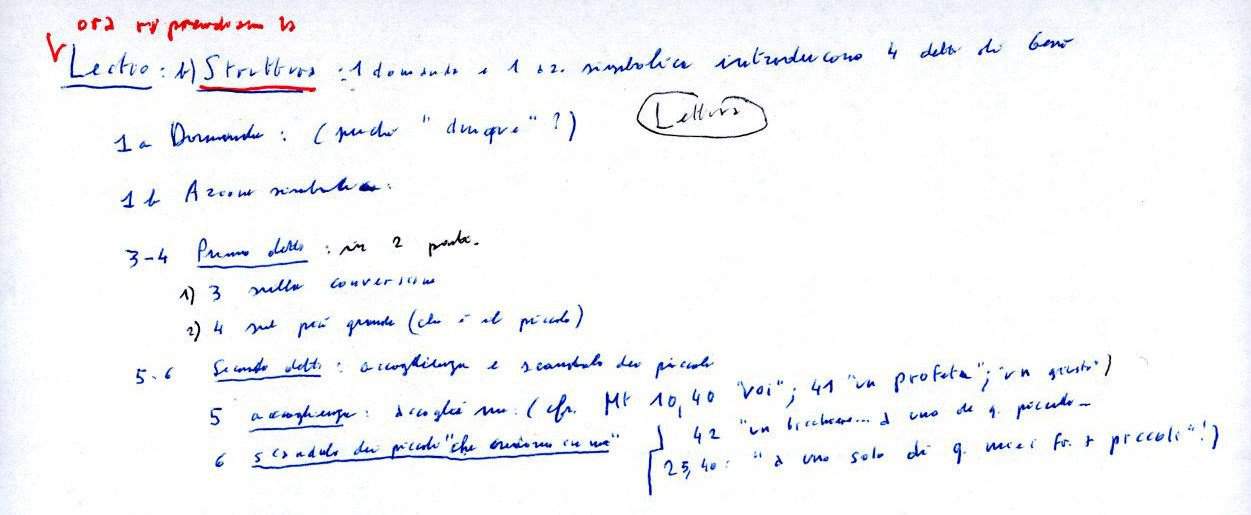 ora riprendiamo la
Lectio: b) Struttura: 1 domanda e 1 az. simbolica introducono 4 detti di Gesù
1a Domanda: (perché "dunque"?) Lettura
1b Azione simbolica:
3-4 Primo detto: in 2 parti.
1) 3 sulla conversione
2) 4 sul più grande (che è il piccolo)
5-6 Secondo detto: accoglienza e scandalo dei piccoli
5 accoglienza: accoglie me: (cfr. Mt 10,40 "voi"; 41 "un profeta"; "un giusto")
42 "un bicchiere... a uno de q. piccoli...
6 scandalo dei piccoli "che credono in me"
25,40: "a uno solo di q. miei fr. + piccoli"!)